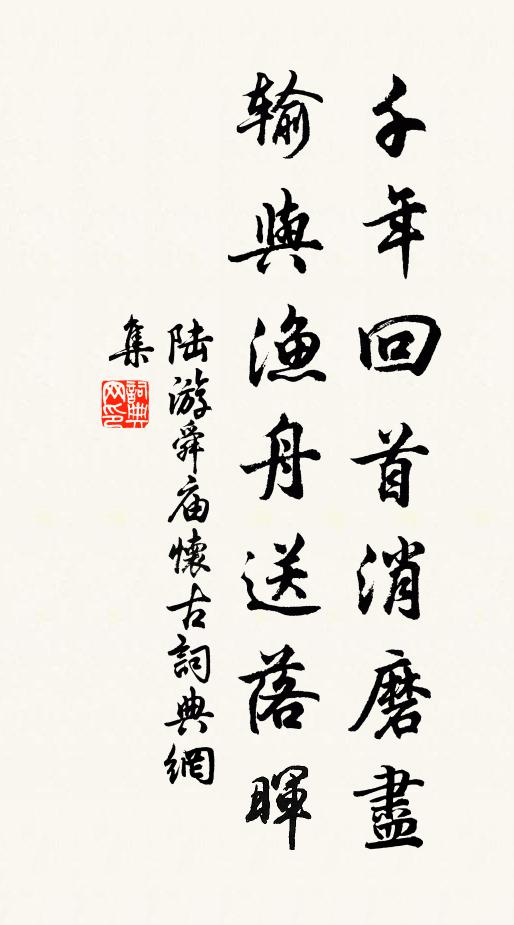 千年回首消磨盡
輸與漁舟送落暉
陆游舜庙懷古詞典網
集
詞典
网印